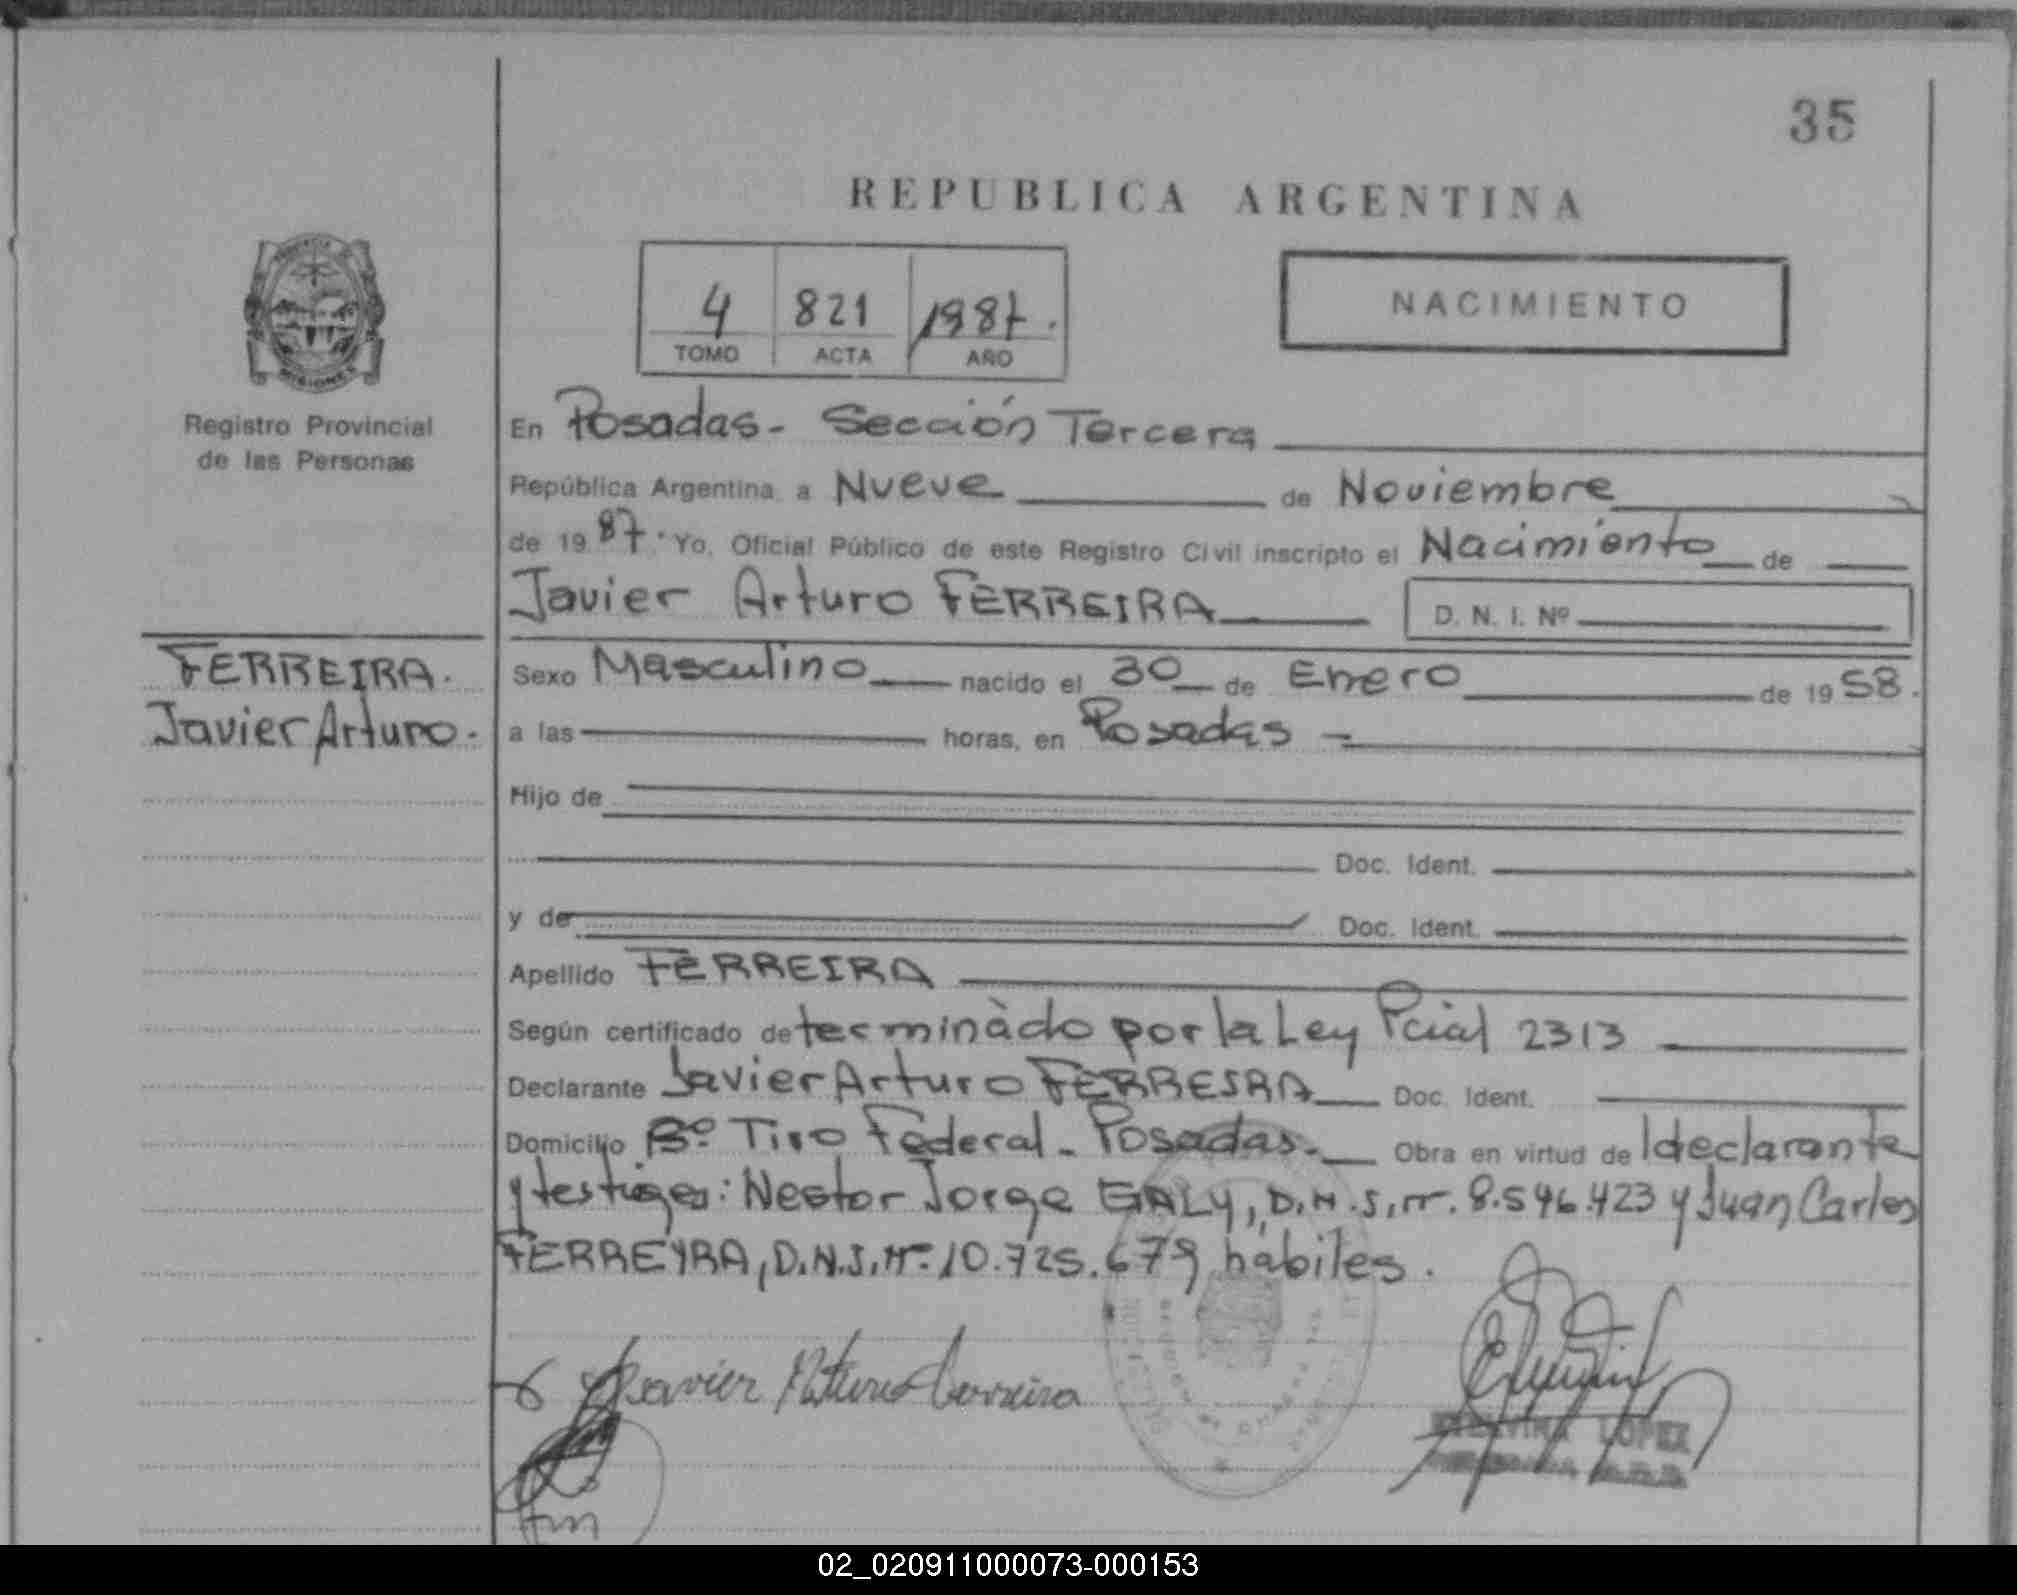 35
REPUBLICA ARGENTINA
4 821 1987.
TOMO ACTA AÑO
NACIMIENTO
MISIONES
Registro Provincial
de las Personas
En Posadas - Sección Tercera
República Argentina, a Nueve de Noviembre
de 1987. Yo, Oficial Público de este Registro Civil inscripto el Nacimiento de
Javier Arturo FERREIRA D. N. I. Nº
FERREIRA.
Javier Arturo.
Sexo Masculino nacido el 30 de Enero de 1958.
a las horas, en Posadas -
Hijo de
Doc. Ident.
y de Doc. Ident.
Apellido FERREIRA
Según certificado determinàdo por la Ley Pcial 2313
Declarante Javier Arturo FERREIRA Doc. Ident.
Domicilio Bº Tiro Federal - Posadas. Obra en virtud de l declarante
y testigos: Nestor Jorge GALY, D.N.I. nº. 8.546.423 y Juan Carlos
FERREYRA, D.N.I. Nº. 10.725.679 hábiles.
Javier Arturo Ferreira
LOPEZ
02_020911000073-000153